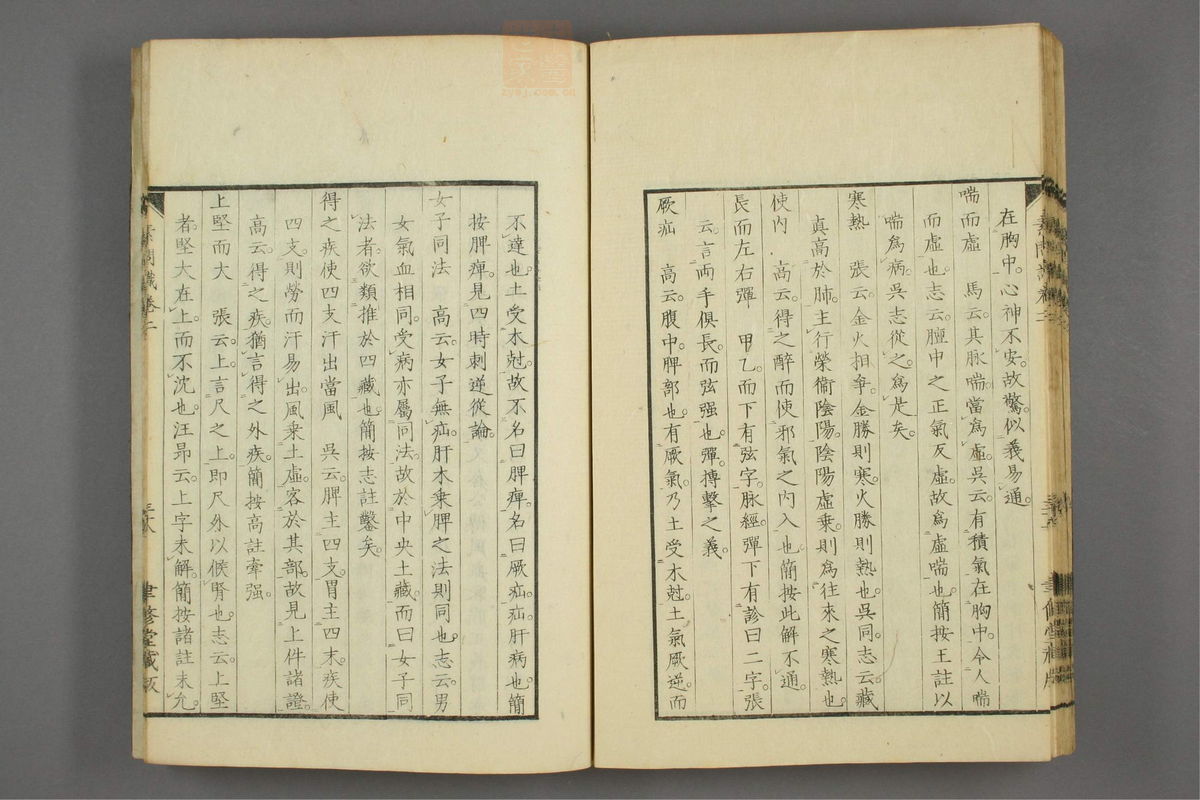 在胸中。心神不安。故驚。似義易通。
喘而虛　馬云。其脉喘。當爲虛。吳云。有積氣在胸中。令人喘
而虛也。志云。膻中之正氣反虛。故爲虛喘也。簡按王註以
喘爲病。吳志從之。爲是矣。
寒熱　張云。金火相爭。金勝則寒。火勝則熱也。吳同。志云。藏
真高於肺。主行榮衞陰陽。陰陽虛乘。則爲往來之寒熱也。
使內　高云。得之醉而使邪氣之內入也。簡按此解不通。
長而左右彈　甲乙而下有弦字。脉經彈下有診曰二字。張
云。言兩手俱長而弦强也。彈。搏擊之義。
厥疝　高云。腹中。脾部也。有厥氣。乃土受木尅。土氣厥逆而
不達也。土受木尅。故不名曰脾痺。名曰厥疝。疝。肝病也。簡
按脾痺。見四時刺逆從論。
女子同法　高云。女子無疝。肝木乘脾之法則同也。志云。男
女氣血相同。受病亦屬同法。故於中央土藏。而曰女子同
法者。欲類推於四藏也。簡按志註鑿矣。
得之疾使四支汗出當風　吳云。脾主四支。胃主四末。疾使
四支。則勞而汗易出。風乘土虛。客於其部。故見上件諸證。
高云。得之疾。猶言得之外疾。簡按高註牽强。
上堅而大　張云。上言尺之上。即尺外以候腎也。志云。上堅
者。堅大在上而不沈也。汪昂云。上字未解。簡按諸註未允。
素問識卷二
聿修堂藏版